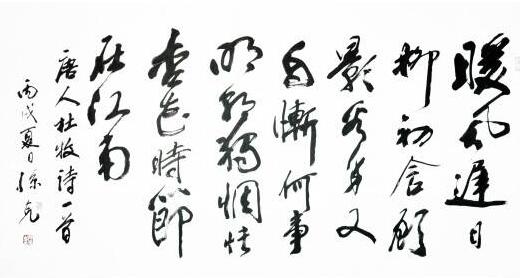 暖風遲日
柳初含顧
影看身又
自慚何事
明朝獨惆悵
杏花時節
在江南
唐人杜牧詩一首
丙戌夏日孫克